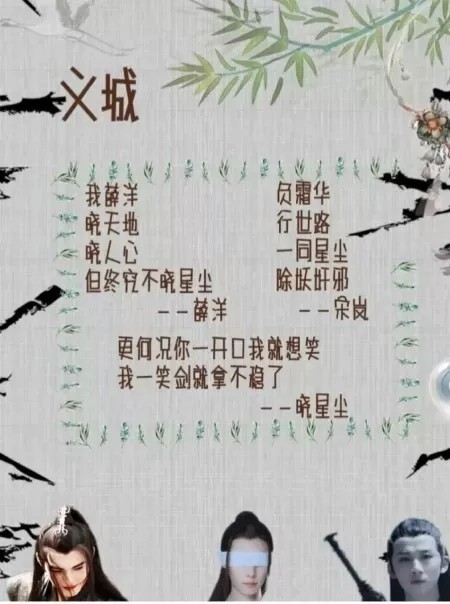 义城
我薛洋
晓天地
晓人心
但终究不晓星尘
——薛洋
负霜华
行世路
一同星尘
除妖奸邪
——宋岚
更何况你一开口我就想笑
我一笑剑就拿不稳了
——晓星尘